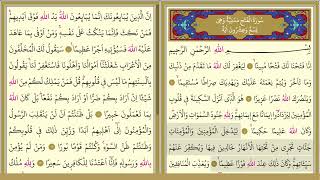 سُورَةُ الْفَتْحِ مَدَنِيَّةٌ وَهِيَ
تِسْعٌ وَعِشْرُونَ اٰيَةً
بِسْمِ اللّٰهِ الرَّحْمٰنِ الرَّحِيمِ
اِنَّا فَتَحْنَا لَكَ فَتْحًا مُبِينًا لِيَغْفِرَ لَكَ اللّٰهُ مَا تَقَدَّمَ مِنْ
ذَنْبِكَ وَمَا تَاَخَّرَ وَيُتِمَّ نِعْمَتَهُ عَلَيْكَ وَيَهْدِيَكَ صِرَاطًا مُسْتَقِيمًا
وَيَنْصُرَكَ اللّٰهُ نَصْرًا عَزِيزًا هُوَ الَّذِي اَنْزَلَ السَّكِينَةَ فِي قُلُوبِ
الْمُؤْمِنِينَ لِيَزْدَادُوا اِيمَانًا مَعَ اِيمَانِهِمْ وَلِلّٰهِ جُنُودُ السَّمٰوَاتِ وَالْاَرْضِ
وَكَانَ اللّٰهُ عَلِيمًا حَكِيمًا لِيُدْخِلَ الْمُؤْمِنِينَ وَالْمُؤْمِنَاتِ
جَنَّاتٍ تَجْرِي مِنْ تَحْتِهَا الْاَنْهَارُ خَالِدِينَ فِيهَا وَيُكَفِّرَ عَنْهُمْ
سَيِّاٰتِهِمْ وَكَانَ ذٰلِكَ عِنْدَ اللّٰهِ فَوْزًا عَظِيمًا وَيُعَذِّبَ الْمُنَافِقِينَ
اِنَّ الَّذِينَ يُبَايِعُونَكَ اِنَّمَا يُبَايِعُونَ اللّٰهَ يَدُ اللّٰهِ فَوْقَ اَيْدِيهِمْ
فَمَنْ نَكَثَ فَاِنَّمَا يَنْكُثُ عَلٰى نَفْسِهِ وَمَنْ اَوْفٰى بِمَا عَاهَدَ
عَلَيْهُ اللّٰهَ فَسَيُؤْتِيهِ اَجْرًا عَظِيمًا سَيَقُولُ لَكَ الْمُخَلَّفُونَ
مِنَ الْاَعْرَابِ شَغَلَتْنَا اَمْوَالُنَا وَاَهْلُونَا فَاسْتَغْفِرْ لَنَا يَقُولُونَ
بِاَلْسِنَتِهِمْ مَا لَيْسَ فِي قُلُوبِهِمْ قُلْ فَمَنْ يَمْلِكُ لَكُمْ مِنَ اللّٰهِ
شَيْئًا اِنْ اَرَادَ بِكُمْ ضَرًّا اَوْ اَرَادَ بِكُمْ نَفْعًا بَلْ كَانَ اللّٰهُ
بِمَا تَعْمَلُونَ خَبِيرًا بَلْ ظَنَنْتُمْ اَنْ لَنْ يَنْقَلِبَ الرَّسُولُ
وَالْمُؤْمِنُونَ اِلٰى اَهْلِيهِمْ اَبَدًا وَزُيِّنَ ذٰلِكَ فِي قُلُوبِكُمْ
وَظَنَنْتُمْ ظَنَّ السَّوْءِ وَكُنْتُمْ قَوْمًا بُورًا وَمَنْ لَمْ يُؤْمِنْ
بِاللّٰهِ وَرَسُولِهِ فَاِنَّا اَعْتَدْنَا لِلْكَافِرِينَ سَعِيرًا وَلِلّٰهِ مُلْكُ